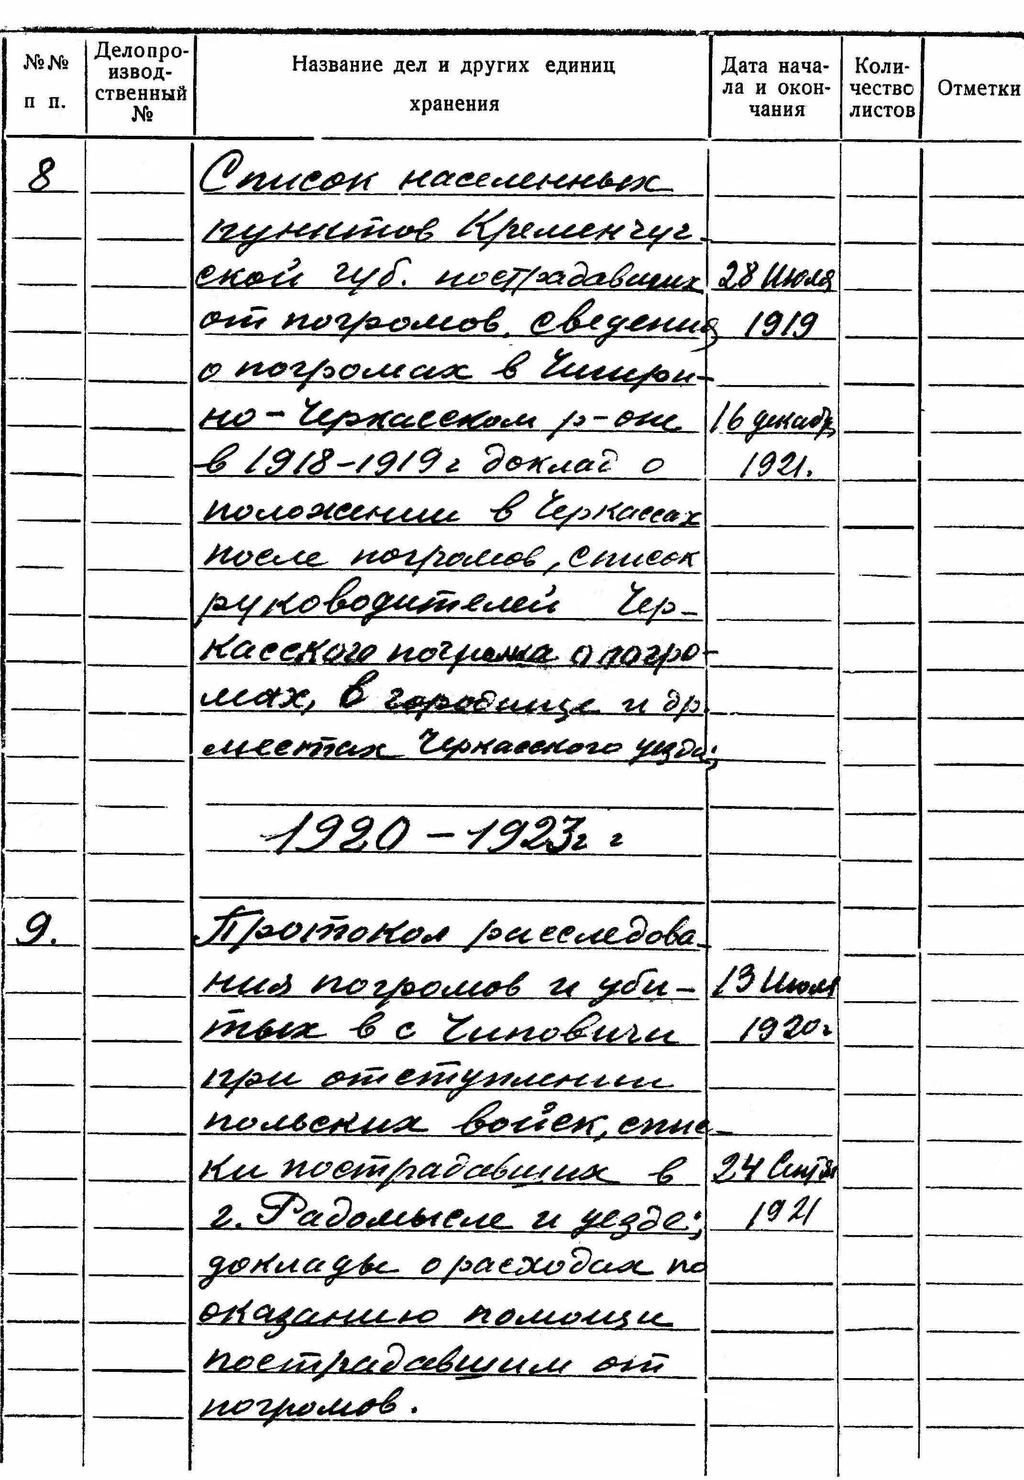 №№ п п. Делопроизводственный № Название дел и других единиц хранения Дата начала и окончания Количество листов Отметки
8 Список населенных
пунктов Кременчуг-
ской губ. пострадавших 28 Июля
от погромов, сведения 1919
о погромах в Чигири-
но-Черкасском р-оне 16 декабр
в 1918-1919 г доклад о 1921.
положении в Черкассах
после погромов, список
руководителей Чер-
касского погрома о погро-
мах, в городище и др.
местах Черкасского уезда;
1920-1923г г
9. Протокол расследова-
ния погромов и уби- 13 Июля
тых в с Чиповичи 1920г
при отступлении
польских войск, спис-
ки пострадавших в 24 Сентяб
г. Радомысле и уезде; 1921
доклады о расходах по
оказанию помощи
пострадавшим от
погромов.